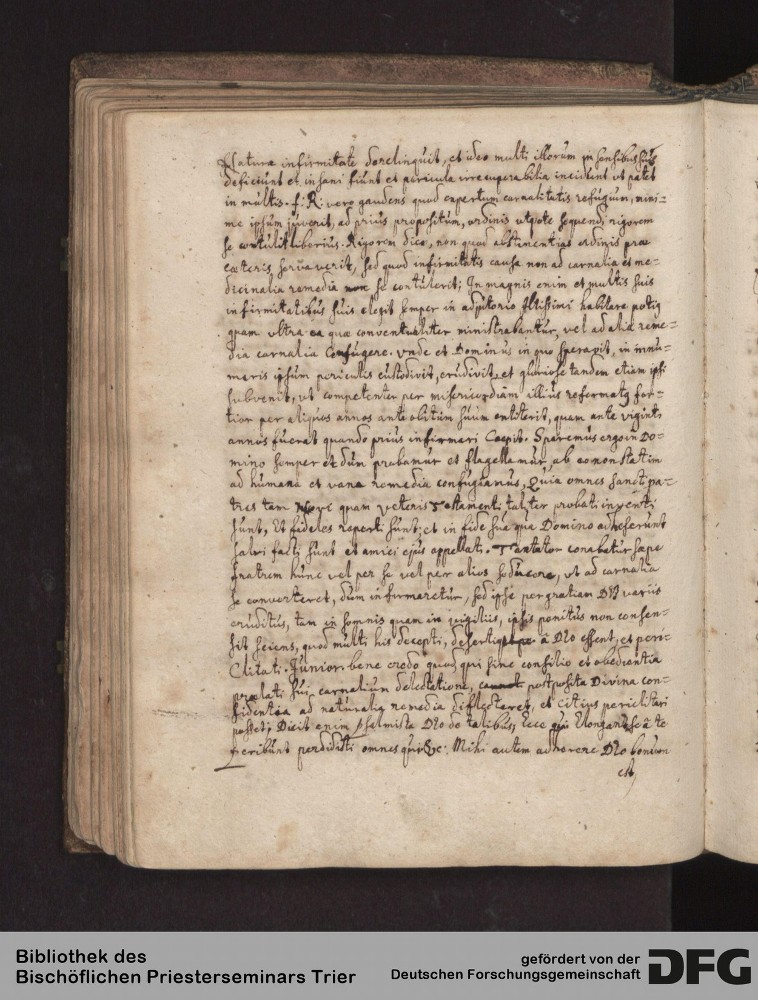 Naturæ infirmitate derelinquit, et ideo multi illorum in sensibus suis
deficiunt et insani fiunt et pericula irrecuperabilia incidunt ut patet
in multis. f. R. vero gaudens quod expertum carnalitatis refugium, mini=
me ipsum juverit, ad prius propositum, ordinis utpote sequendi rigorem
se contulit liberius. Rigorem dico, non quod abstinentias ordinis præ
cæteris servaverit, sed quod infirmitatis causa non ad carnalia et me=
dicinalia remedia se contulerit; In magnis enim et multis suis
infirmitatibus suis elegit semper in adjutorio Altissimi habitare potiq
quam ultra ea quæ conventualiter ministrabantur, vel ad alia reme=
dia carnalia confugere. Unde et Dominus in quo speravit, in innu=
meris ipsum periculis custodivit, erudivit, et tandem etiam ipsi
subvenit, ut competenter per misericordiam illius reformatq for=
tior per aliquos annos ante obitum suum extiterit, quam ante viginti
annos fuerat quando prius infirmari Cæpit. Speremus ergo in Do=
mino semper et dum probamur et flagellamur, ab eo non statim
ad humana et vana remedia confugiamus, Quia omnes sancti pa=
tres tam Novi quam veteris Testamenti taliter probati inventi
sunt, Et fideles reperti sunt; et in fide sua qua Domino adhæserunt
salvi facti sunt et amici ejus appellati. Tentator conabatur sæpe
fratrem hunc vel per se vel per alios seducere, ut ad carnalia
se converteret, dum infirmaretur, sed ipse per gratiam DEI variis
eruditus, tam in somnis quam in vigiliis, ipsis penitus non consen=
sit sciens, quod multi his decepti, a DEo essent, et peri=
Clitati. Junior bene credo quod qui sine consilio et obedientia
prælati sui carnalium delectatione, postposita Divina con=
fidentia ad naturalia remedia diflecteret, et citius periclitari
posset; Dicit enim psalmista DEo de talibus, Ecce qui Elongant se â te
peribunt perdidisti omnes qui &c: Mihi autem adhærere DEo bonum